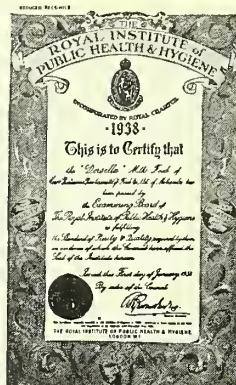 THE
ROYAL INSTITUTE of
PUBLIC HEALTH & HYGIENE
INCORPORATED BY ROYAL CHARTER
·1938·
This is to Certify that
the "Dorsella" Milk Food of
has
been passed by
the Examining Board of
The Royal Institute of Public Health & Hygiene
as fulfilling
the Standard of Purity & Quality required by them
in evidence of which the Council have affixed the
Seal of the Institute hereon
Dated this First day of January 1938
By order of the Council
THE ROYAL INSTITUTE OF PUBLIC HEALTH & HYGIENE
LONDON W1